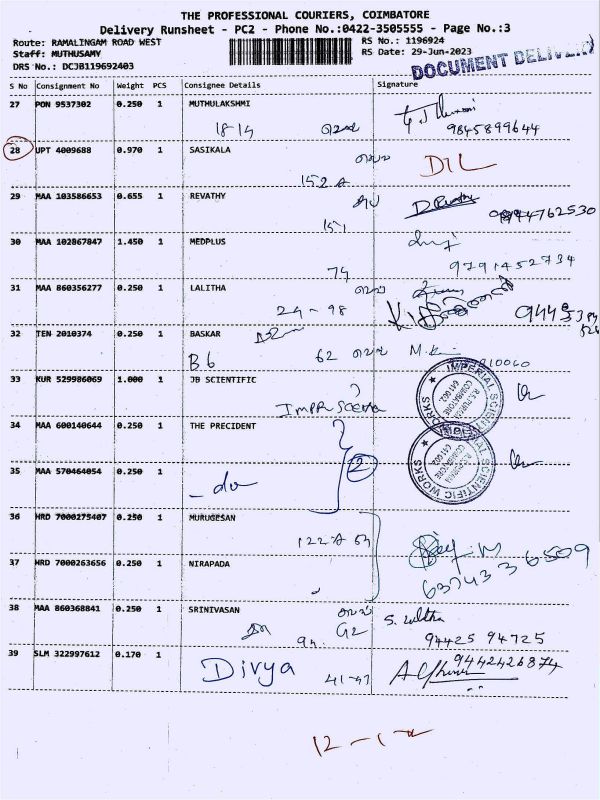 THE PROFESSIONAL COURIERS, COIMBATORE
Delivery Runsheet - PC2 - Phone No.:0422-3505555 - Page No.:3
Route: RAMALINGAM ROAD WEST
Staff: MUTHUSAMY
DRS No.: DCJB119692403
RS No.: 1196924
RS Date: 29-Jun-2023
DOCUMENT DELIVERY
S No Consignment No Weight PCS Consignee Details Signature
27 PON 9537302 0.250 1 MUTHULAKSHMI
18-14 9845899644
28 UPT 4009688 0.970 1 SASIKALA
152 A DIL
29 MAA 103586653 0.655 1 REVATHY
151 D Revathy 4762530
30 MAA 102867847 1.450 1 MEDPLUS
74 9791452734
31 MAA 860356277 0.250 1 LALITHA
24-98
32 TEN 2010374 0.250 1 BASKAR
B6 62
33 KUR 529986069 1.000 1 JB SCIENTIFIC
IMPERIAL SCIENTIFIC WORKS
R.S.PURAM
COIMBATORE
641 002.
34 MAA 600140644 0.250 1 THE PRECIDENT
2
35 MAA 570464054 0.250 1
- do
IMPERIAL SCIENTIFIC WORKS
R.S.PURAM
COIMBATORE
641 002.
36 HRD 7000275407 0.250 1 MURUGESAN
122-A
37 HRD 7000263656 0.250 1 NIRAPADA
6374336509
38 MAA 860368841 0.250 1 SRINIVASAN
G2 94425 94725
39 SLM 322997612 0.170 1
Divya 41-47 9442426874